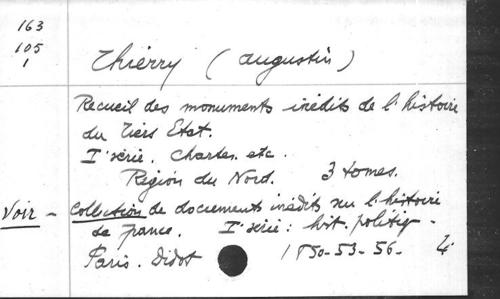 163
105
1
Thierry (Augustin)
Recueil des monuments inédits de l'histoire
du Tiers Etat.
I° série. Chartes. etc.
Région du Nord. 3 tomes.
Voir - Collection de documents inédits sur l'histoire
de France. I° série : hist. politiq -
Paris. Didot 1850-53-56- 4°